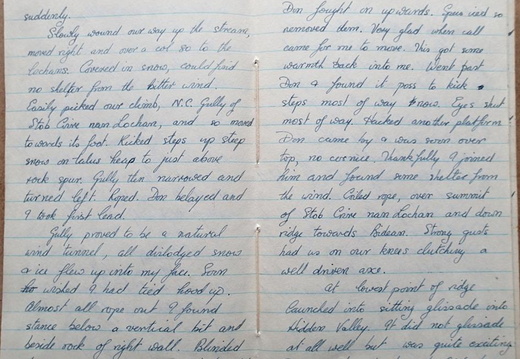 suddenly.
Slowly wound our way up the stream,
moved right and over a col so to the
lochans. Covered in snow, could find
no shelter from the bitter wind.
Easily picked our climb, N.C. Gully of
Stob Coire nam Lochan, and so moved
towards its foot. Kicked steps up steep
snow on talus heap to just above
rock spur. Gully then narrowed and
turned left. Roped. Don belayed and
I took first lead.
Gully proved to be a natural
wind tunnel, all dislodged snow
& ice flew up into my face. Soon
wished I had tied hood up.
Almost all rope out I found
stance below a vertical bit and
beside rock of right wall. Blinded
Don fought on upwards. Specs iced so
removed them. Very glad when call
came for me to move. This got some
warmth back into me. Went past
Don & found it poss to kick
steps most of way now. Eyes shut
most of way. Hacked another platform
Don came by & was soon over
top, no cornice. Thankfully I joined
him and found some shelter from
the wind. Coiled rope, over summit
of Stob Coire nam Lochan and down
ridge towards Bidean. Strong gusts
had us on our knees clutching a
well driven axe.
At lowest point of ridge
launched into sitting glissade into
Hidden Valley. It did not glissade
at all well but was quite exciting